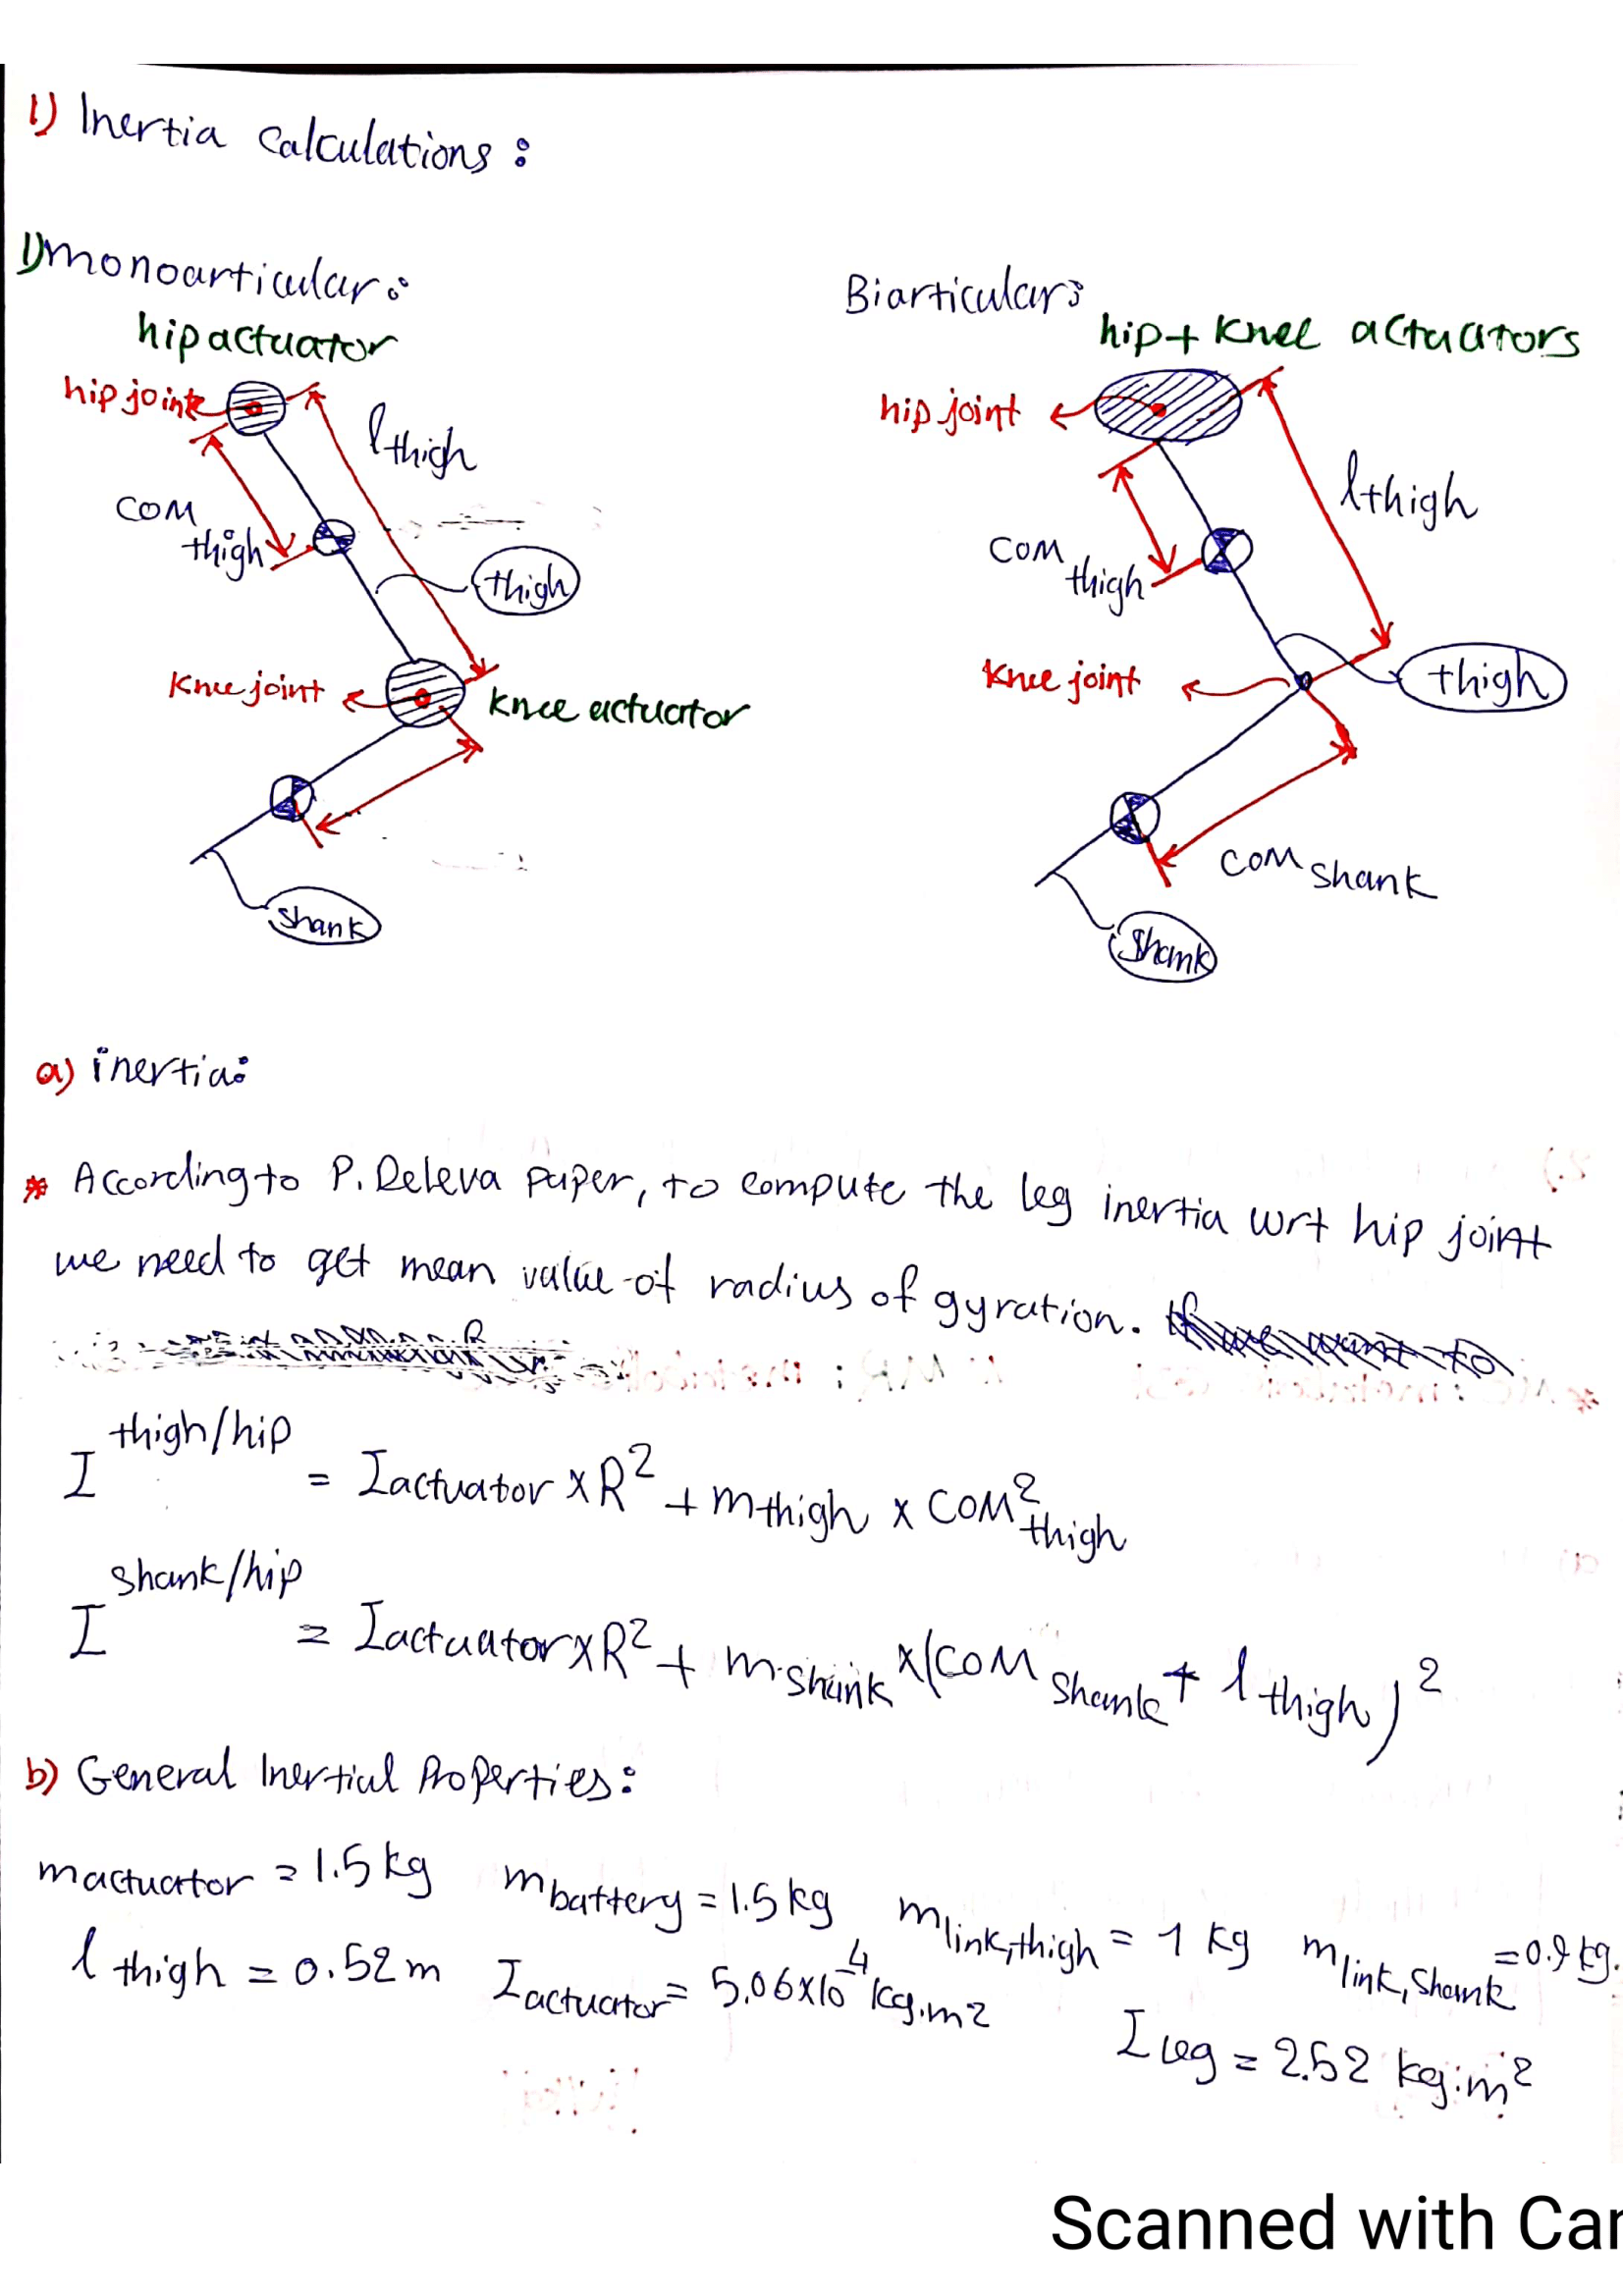 1) Inertia Calculations:
1) monoarticular:
hip actuator
hip joint
l thigh
COM thigh
thigh
Knee joint
Knee actuator
Shank
Biarticular:
hip + Knee actuators
hip joint
l thigh
COM thigh
Knee joint
thigh
COM shank
Shank
a) inertia:
* According to P. Deleva paper, to compute the leg inertia wrt hip joint
we need to get mean value of radius of gyration.
I^thigh/hip = I actuator x R² + m thigh x COM² thigh
I^shank/hip = I actuator x R² + m shank x (COM shank + l thigh)²
b) General Inertial Properties:
m actuator = 1.5 kg m battery = 1.5 kg m link,thigh = 1 kg m link,shank = 0.9 kg.
l thigh = 0.52 m I actuator = 5.06x10⁻⁴ kg.m² I leg = 2.52 kg.m²
Scanned with Car